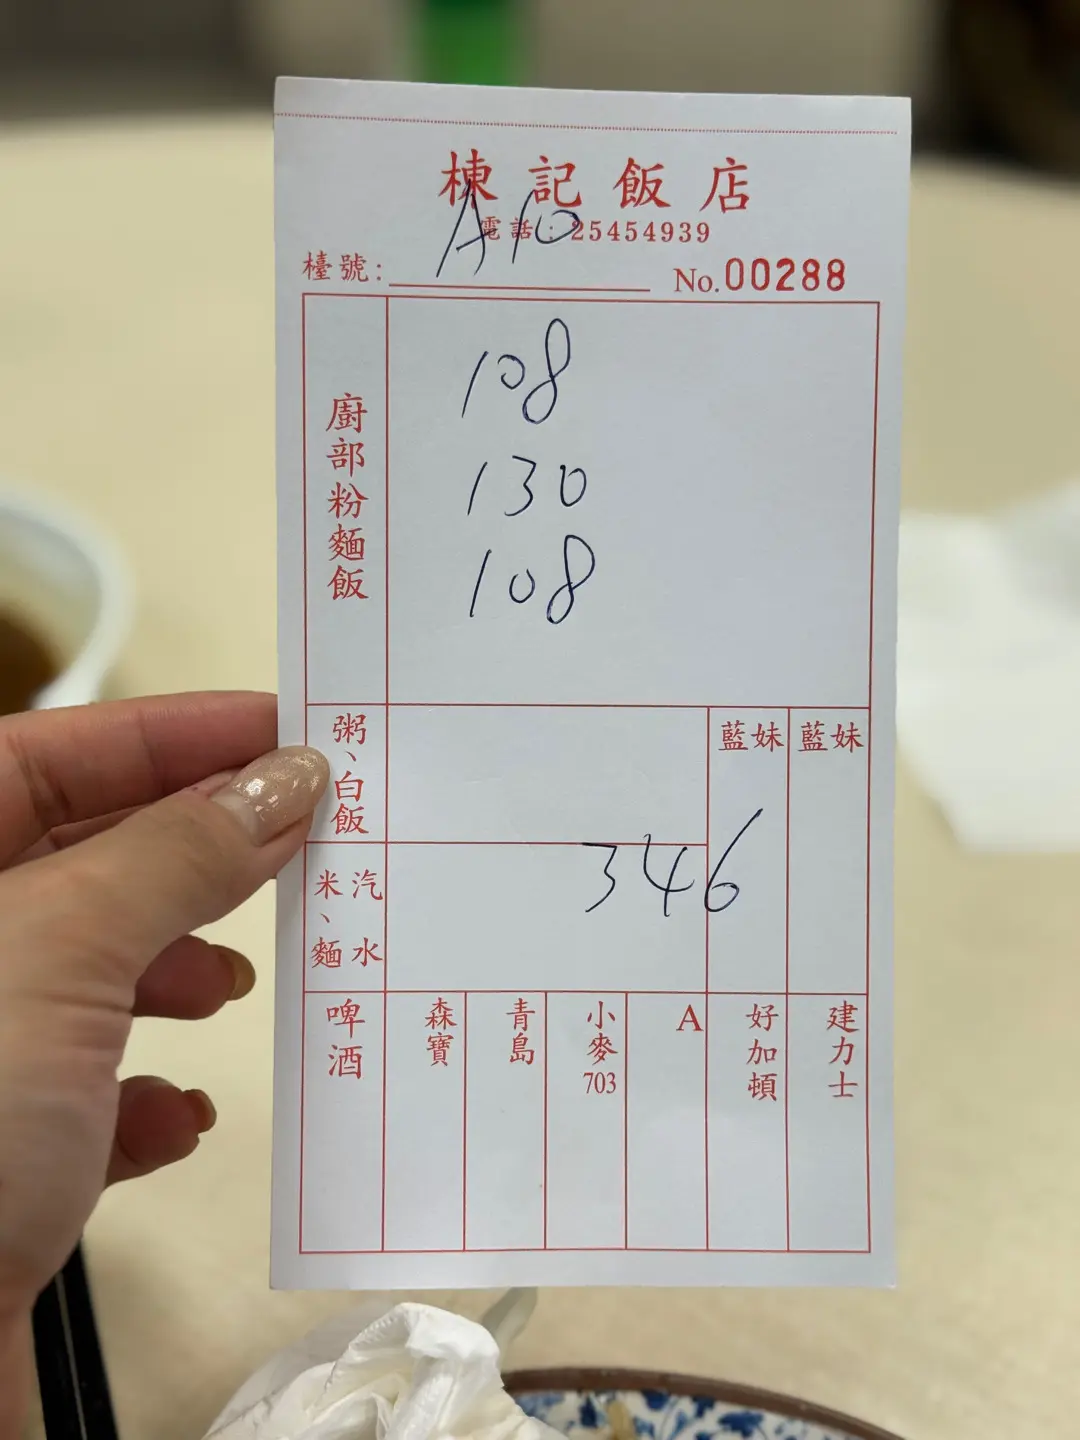 棟記飯店
電話：25454939
檯號： A10 No.00288
廚部粉麵飯
108
130
108
粥、白飯
藍妹 藍妹
米、麵 汽水
346
啤酒 森寶 青島 小麥703 A 好加頓 建力士